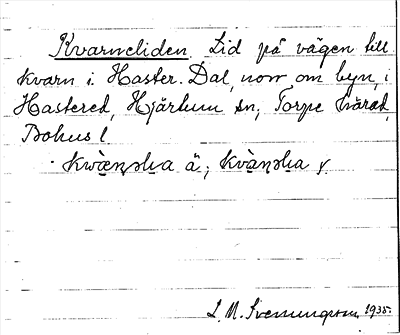 Kvarneliden. Lid på vägen till
kvarn i Haster. Dal, norr om byn, i
Hastered, Hjärtum sn, Torpe härad,
Bohus l.
ä; y
S. M. Svenungsson, 1935.